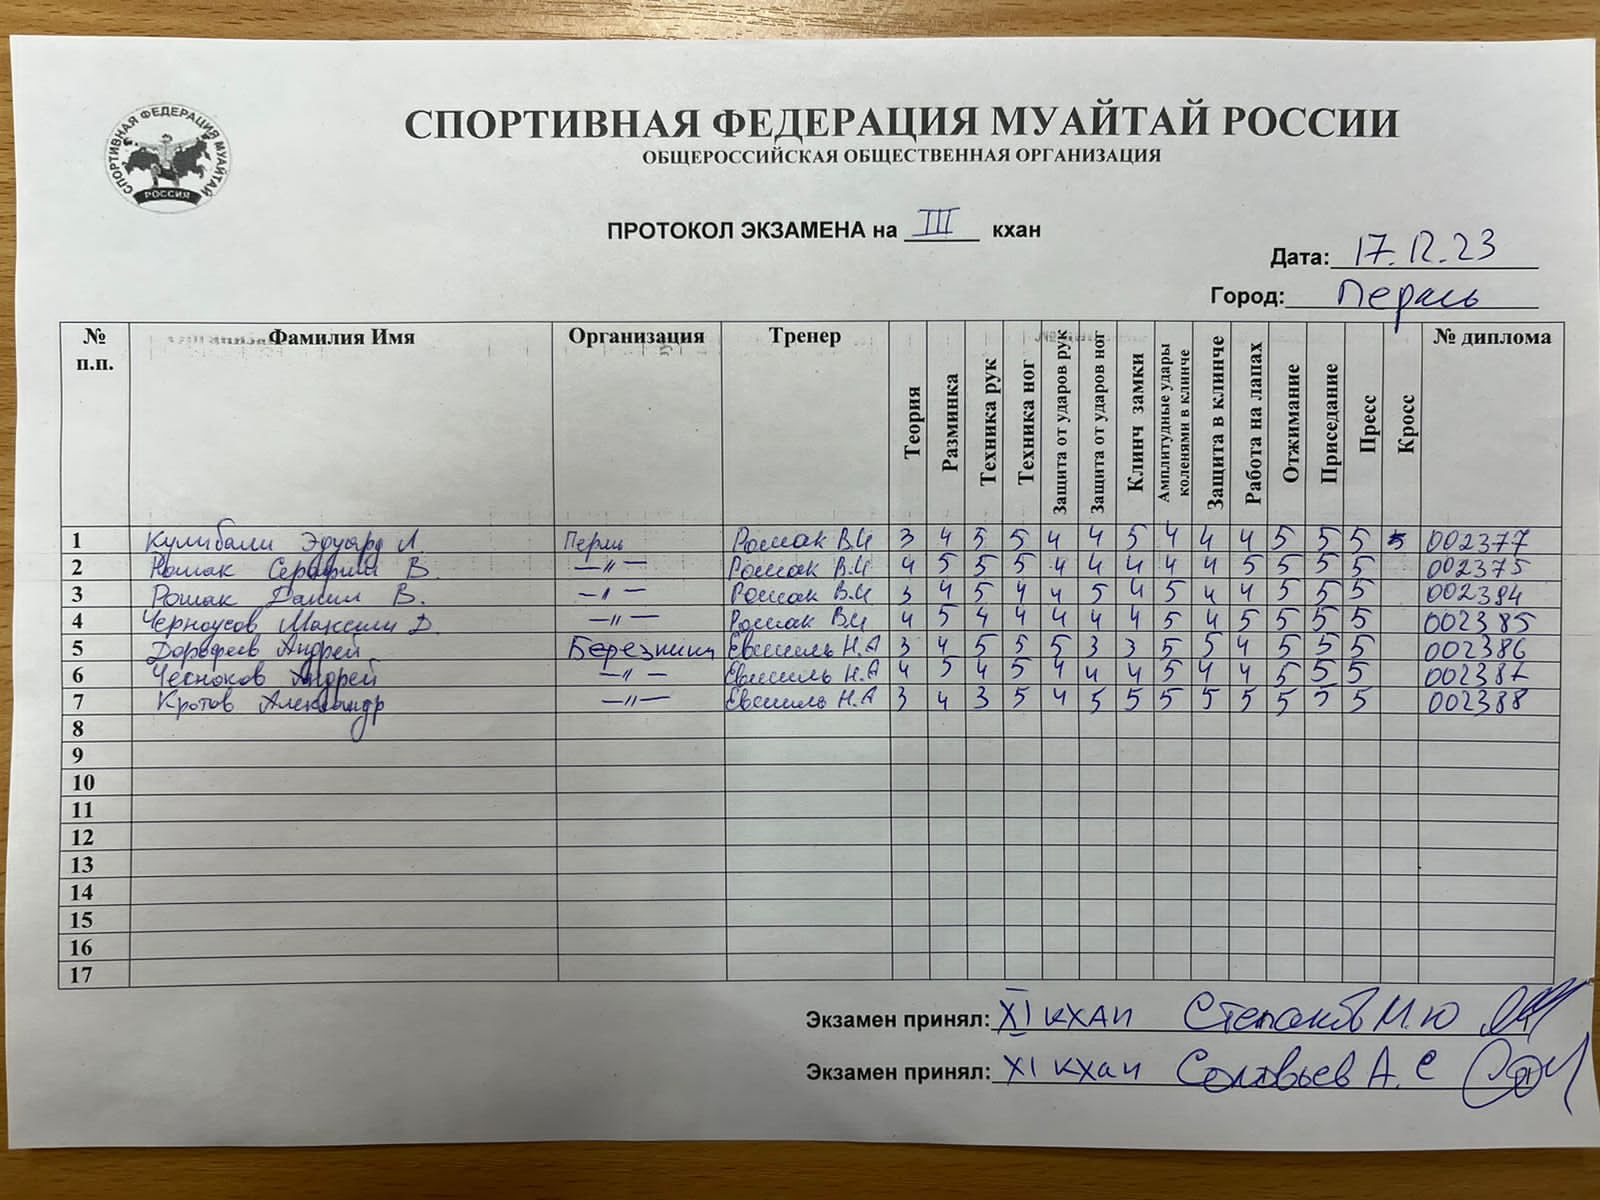 СПОРТИВНАЯ ФЕДЕРАЦИЯ МУАЙТАЙ РОССИЯ
СПОРТИВНАЯ ФЕДЕРАЦИЯ МУАЙТАЙ РОССИИ
ОБЩЕРОССИЙСКАЯ ОБЩЕСТВЕННАЯ ОРГАНИЗАЦИЯ
ПРОТОКОЛ ЭКЗАМЕНА на III кхан
Дата: 17.12.23
Город: Пермь
№ п.п. Фамилия Имя Организация Тренер Теория Разминка Техника рук Техника ног Защита от ударов рук Защита от ударов ног Клинч замки Амплитудные удары коленями в клинче Защита в клинче Работа на лапах Отжимание Приседание Пресс Кросс № диплома
1 Кулибали Эдуард Л. Пермь Рошак В.И 3 4 5 5 4 4 5 4 4 4 5 5 5 5 002377
2 Рошак Серафим В. —"— Рошак В.И 4 5 5 5 4 4 4 4 4 5 5 5 5 002375
3 Рошак Данил В. —"— Рошак В.И 3 4 5 4 4 5 4 5 4 4 5 5 5 002384
4 Черноусов Максим Д. —"— Рошак В.И 4 5 4 4 4 4 4 5 4 5 5 5 5 002385
5 Дорофеев Андрей Березники Евсиль Н.А 3 4 5 5 5 3 3 5 5 4 5 5 5 002386
6 Чесноков Андрей —"— Евсиль Н.А 4 5 4 5 4 4 4 5 4 4 5 5 5 002387
7 Кротов Александр —"— Евсиль Н.А 3 4 3 5 4 5 5 5 5 5 5 5 5 002388
8
9
10
11
12
13
14
15
16
17
Экзамен принял: XI кхан Степанов М.Ю
Экзамен принял: XI кхан Соловьев А.С